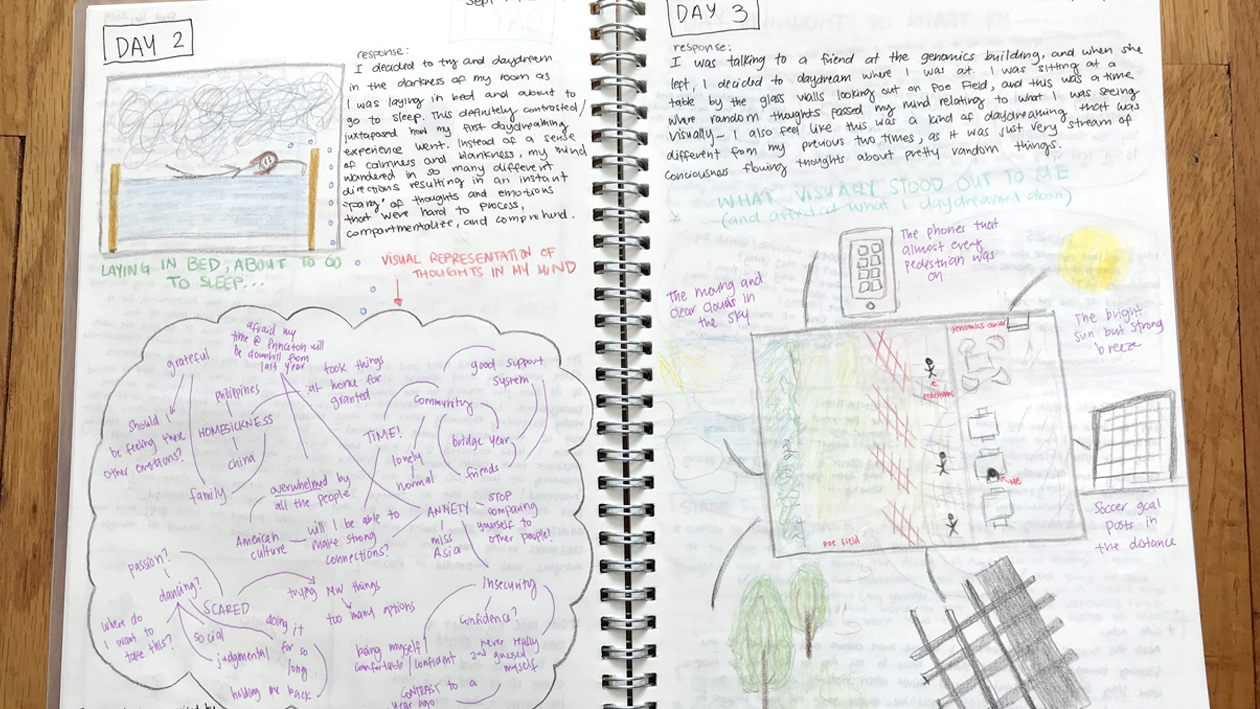 Sept
DAY 2
response:
I decided to try and daydream
in the darkness of my room as
I was laying in bed and about to
go to sleep. This definitely contrasted/
juxtaposed how my first daydreaming
experience went. Instead of a sense
of calmness and blankness, my mind
wandered in so many different
directions resulting in an instant
of thoughts and emotions
that were hard to process,
compartmentalize, and comprehend.
LAYING IN BED, ABOUT TO GO
TO SLEEP...
VISUAL REPRESENTATION OF
THOUGHTS IN MY MIND
grateful
afraid my
time @ Princeton will
be downhill from
last year
took things
at home for
granted
good support
system
Philippines
community
should I
be feeling these
other emotions?
HOMESICKNESS
TIME!
bridge year
china
lonely
friends
family
normal
overwhelmed by
all the people
ANXIETY
STOP
comparing
yourself to
other people!
American
culture
will I be able to
make strong
connections?
miss
Asia
passion?
dancing?
SCARED
trying new things
too many options
insecurity
confidence?
where do
I want to
take this?
social
judgmental
doing it
for so
long
holding me back
being myself
comfortable/confident
never really
and
myself
CONTRAST to a
year ago
by
DAY 3
response:
I was talking to a friend at the genomics building, and when she
left, I decided to daydream where I was at. I was sitting at a
table by the glass walls looking out on Poe Field, and this was a time
where random thoughts passed my mind relating to what I was seeing
visually - I also feel like this was a kind of daydreaming that was
different from my previous two times, as it was just very stream of
conciousness flowing thoughts about pretty random things.
WHAT VISUALLY STOOD OUT TO ME
(and affected what I daydreamed about)
The moving and
clear clouds in
the sky
The phones that
almost every
pedestrian was
on
The bright
sun but strong
breeze
genomics
pedestrians
me
Poe field
Soccer goal
posts in
the distance